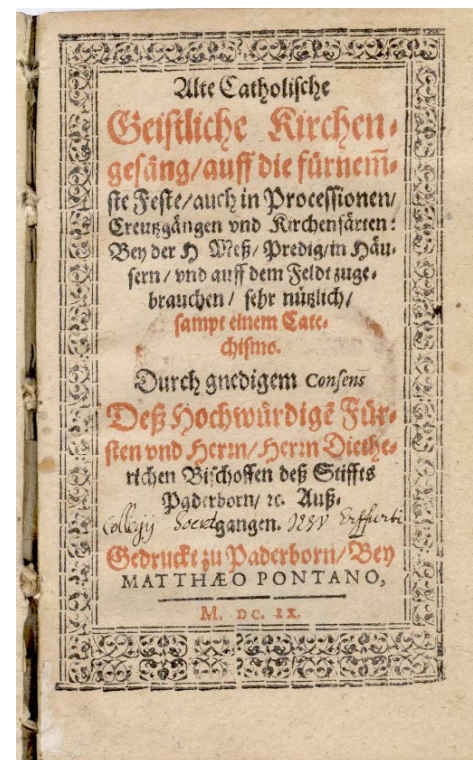 Alte Catholische
Geistliche Kirchen-
gesäng/auff die fürnem̃-
ste Feste/auch in Processionen/
Creutzgängen vnd Kirchenfärten:
Bey der H Meß/Predig/in Häu-
sern/vnd auff dem Feldt zuge-
brauchen/sehr nützlich/
sampt einem Cate-
chismo.
Durch gnedigem Consens
Deß Hochwürdigẽ Für-
sten vnd Herrn/Herrn Diethe-
richen Bischoffen deß Stiffts
Paderborn/ ꝛc. Auß-
Collegij Societ gangen. JESV Erfforti
Gedruckt zu Paderborn/Bey
MATTHÆO PONTANO,
M. DC. IX.